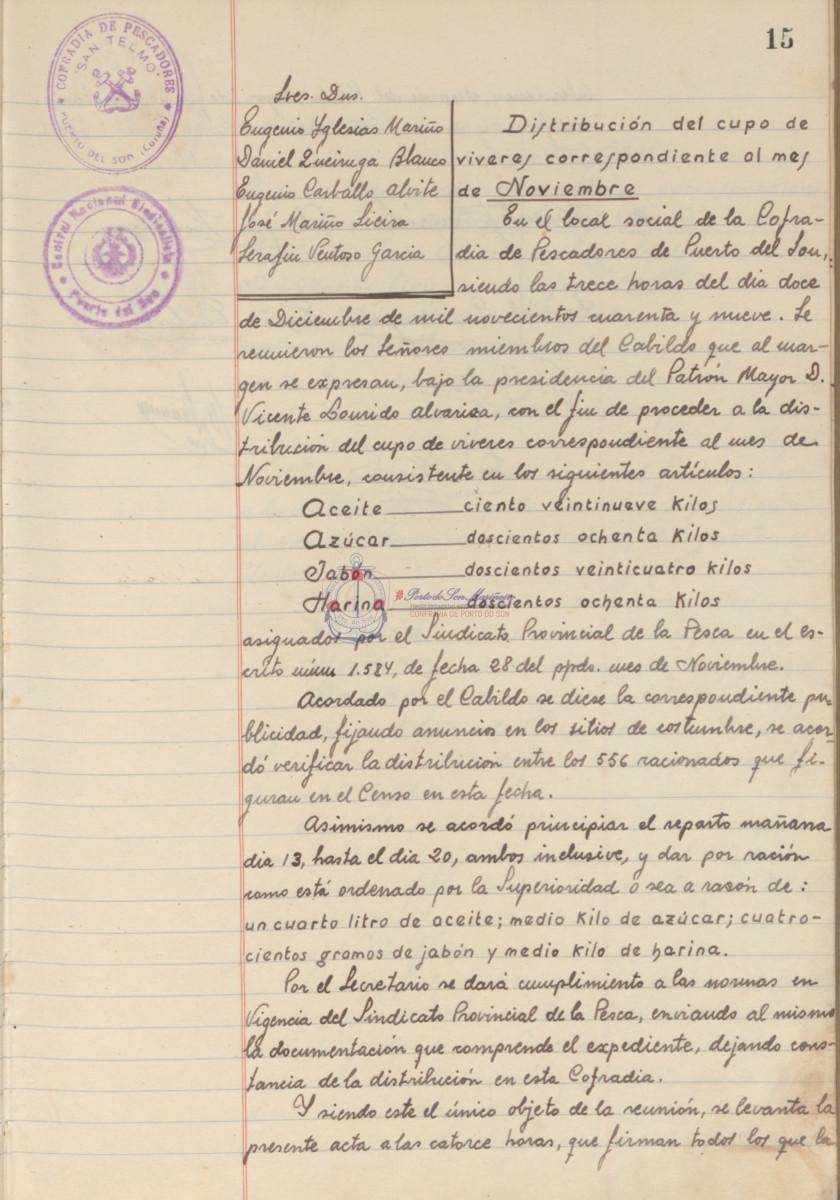 15
COFRADIA DE PESCADORES
"SAN TELMO"
PUERTO DEL SON (Coruña)
Central Nacional Sindicalista
Puerto del Son
Sres. Dns.
Eugenio Yglesias Mariño
Daniel Queiruga Blanco
Eugenio Carballo alvite
José Mariño Sieira
Serafin Ventoso Garcia
Distribución del cupo de
viveres correspondiente al mes
de Noviembre
En el local social de la Cofra-
dia de Pescadores de Puerto del Son,
siendo las trece horas del dia doce
de Diciembre de mil novecientos cuarenta y nueve. Se
reunieron los Señores miembros del Cabildo que al mar-
gen se expresan, bajo la presidencia del Patrón Mayor D.
Vicente Lourido alvariza, con el fin de proceder a la dis-
tribución del cupo de viveres correspondiente al mes de
Noviembre, consistente en los siguientes artículos:
Aceite ciento veintinueve Kilos
Azúcar doscientos ochenta Kilos
Jabón doscientos veinticuatro kilos
Harina doscientos ochenta Kilos
Porto do Son Mariñeiro
CONFRARIA DE PORTO DO SON
asignados por el Sindicato Provincial de la Pesca en el es-
crito núm 1.584, de fecha 28 del ppdo. mes de Noviembre.
Acordado por el Cabildo se diese la correspondiente pu-
blicidad, fijando anuncios en los sitios de costumbre, se acor-
dó verificar la distribución entre los 556 racionados que fi-
guran en el Censo en esta fecha.
Asimismo se acordó principiar el reparto mañana
dia 13, hasta el dia 20, ambos inclusive, y dar por ración
como está ordenado por la Superioridad o sea a razón de:
un cuarto litro de aceite; medio Kilo de azúcar; cuatro-
cientos gramos de jabón y medio kilo de harina.
Por el Secretario se dará cumplimiento a las normas en
Vigencia del Sindicato Provincial de la Pesca, enviando al mismo
la documentación que comprende el expediente, dejando cons-
tancia de la distribución en esta Cofradia.
Y siendo este el único objeto de la reunión, se levanta la
presente acta a las catorce horas, que firman todos los que la